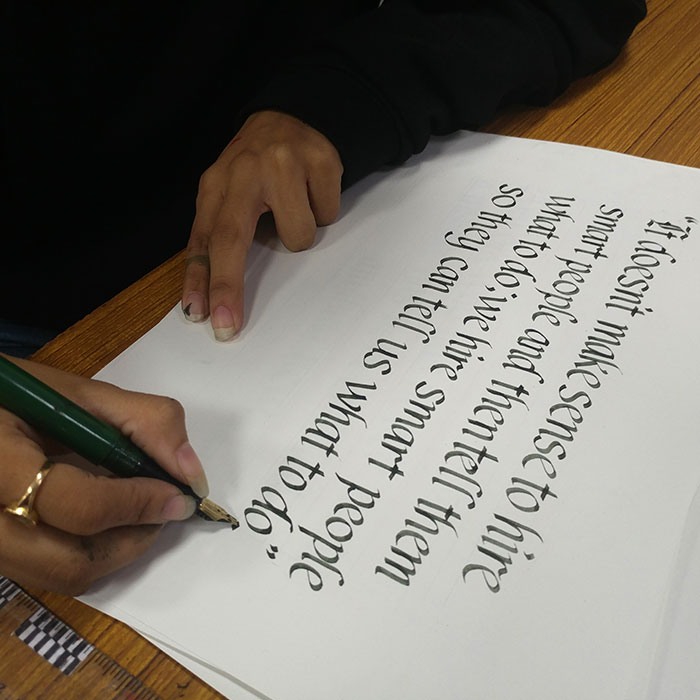 "It doesn't make sense to hire
smart people and then tell them
what to do; we hire smart people
so they can tell us what to do."